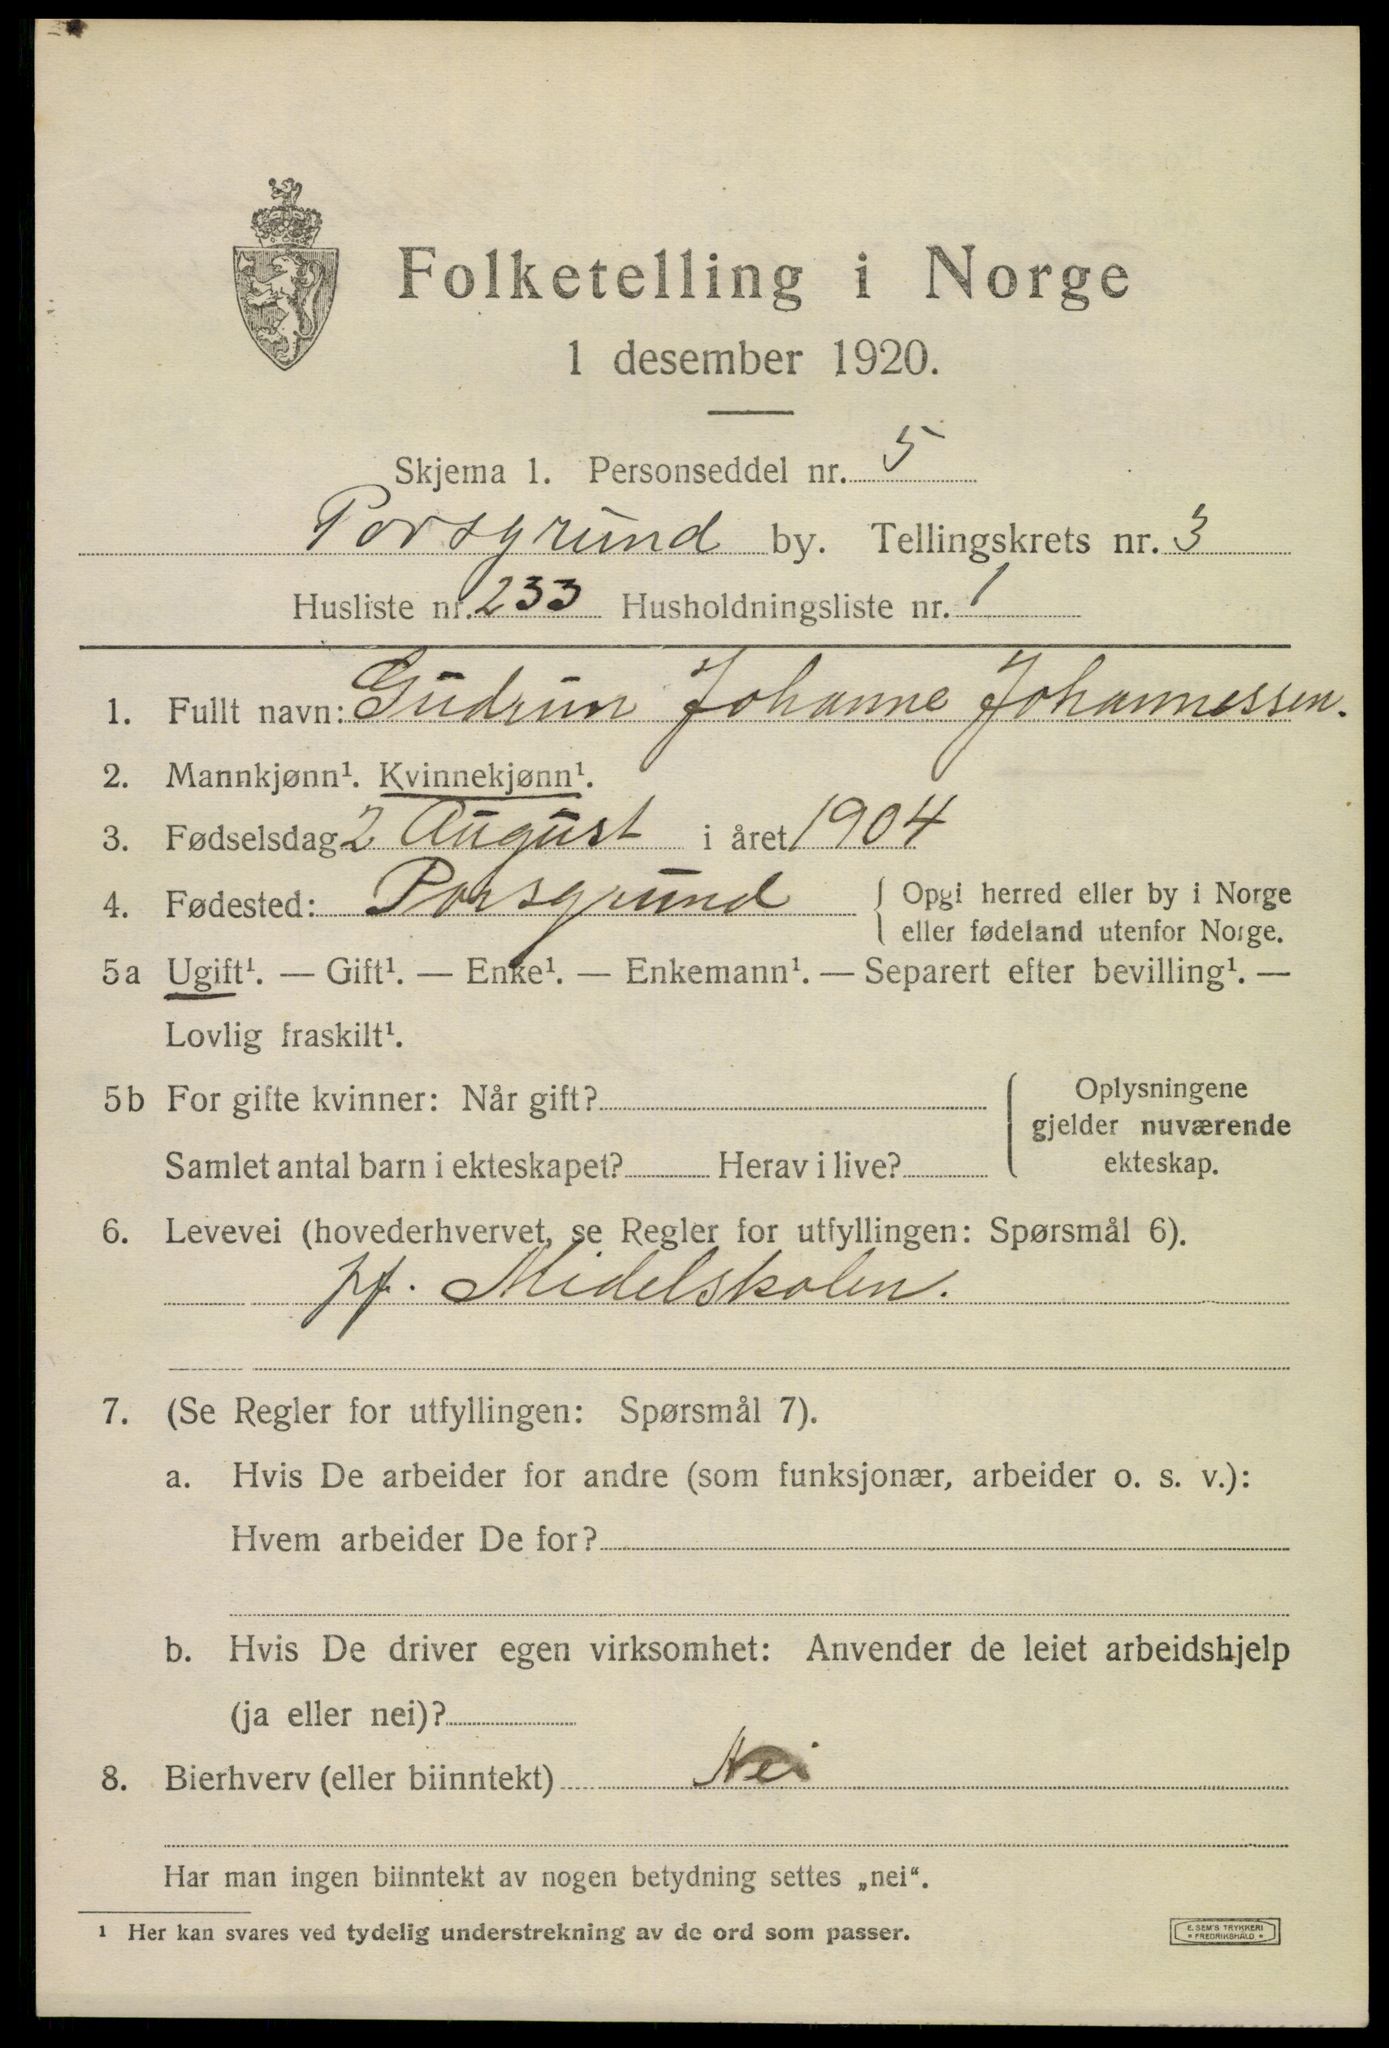 Folketelling i Norge
1 desember 1920.
Skjema 1. Personseddel nr. 5
Porsgrund by. Tellingskrets nr. 3
Husliste nr. 233 Husholdningsliste nr. 1
1. Fullt navn: Gudrun Johanne Johannessen.
2. Mannkjønn¹. Kvinnekjønn¹.
3. Fødselsdag 2 August i året 1904
4. Fødested: Porsgrund { Opgi herred eller by i Norge
eller fødeland utenfor Norge.
5a Ugift¹. — Gift¹. — Enke¹. — Enkemann¹. — Separert efter bevilling¹. —
Lovlig fraskilt¹.
5b For gifte kvinner: Når gift? { Oplysningene
gjelder nuværende
Samlet antal barn i ekteskapet? Herav i live? ekteskap.
6. Levevei (hovederhvervet, se Regler for utfyllingen: Spørsmål 6).
pf. Midelskolen.
7. (Se Regler for utfyllingen: Spørsmål 7).
a. Hvis De arbeider for andre (som funksjonær, arbeider o. s. v.):
Hvem arbeider De for?
b. Hvis De driver egen virksomhet: Anvender de leiet arbeidshjelp
(ja eller nei)?
8. Bierhverv (eller biinntekt) Nei
Har man ingen biinntekt av nogen betydning settes „nei“.
¹ Her kan svares ved tydelig understrekning av de ord som passer.
E. SEM'S TRYKKERI
* FREDRIKSHALD *